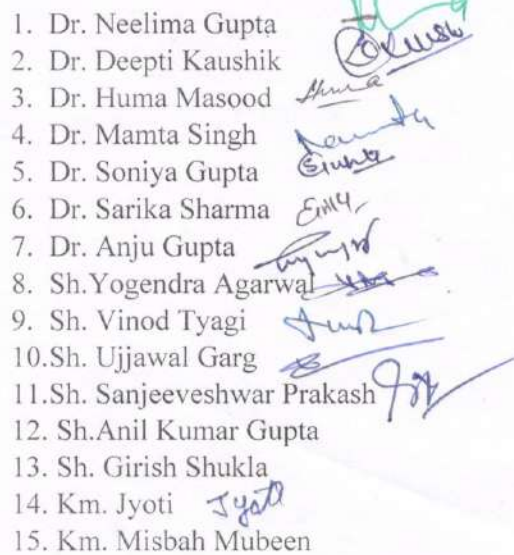 1. Dr. Neelima Gupta
2. Dr. Deepti Kaushik
3. Dr. Huma Masood Huma
4. Dr. Mamta Singh Mamta
5. Dr. Soniya Gupta
6. Dr. Sarika Sharma
7. Dr. Anju Gupta
8. Sh.Yogendra Agarwal
9. Sh. Vinod Tyagi
10.Sh. Ujjawal Garg
11.Sh. Sanjeeveshwar Prakash
12. Sh.Anil Kumar Gupta
13. Sh. Girish Shukla
14. Km. Jyoti Jyoti
15. Km. Misbah Mubeen